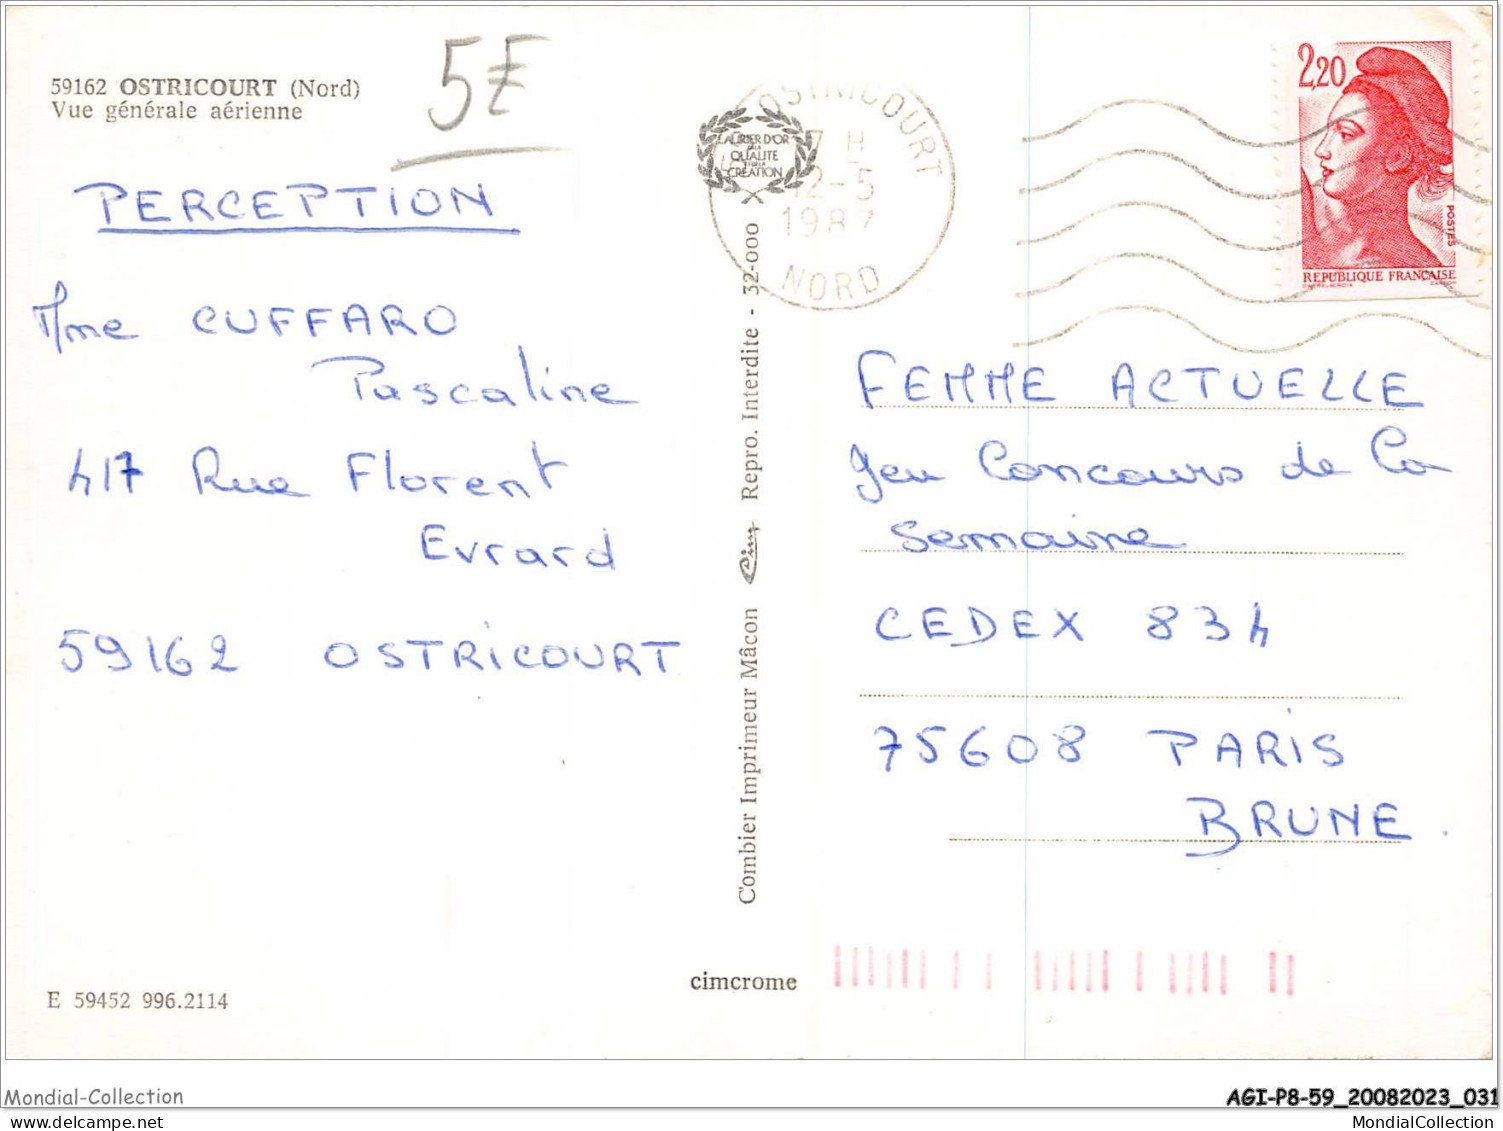 59162 OSTRICOURT (Nord)
Vue générale aérienne
5E
PERCEPTION
Mme CUFFARO
Pascaline
417 Rue Florent
Evrard
59162 OSTRICOURT
E 59452 996.2114
LAURIER D'OR
DE LA
QUALITE
ET DE LA
CREATION
Combier Imprimeur Mâcon Cim Repro. Interdite - 32-000
cimcrome
OSTRICOURT
7 H
12-5
1987
NORD
2,20
POSTES
REPUBLIQUE FRANÇAISE
FEMME ACTUELLE
Jeu Concours de La
Semaine
CEDEX 834
75608 PARIS
BRUNE.
Mondial-Collection
AGI-P8-59_20082023_031
MondialCollection
MondialCollection